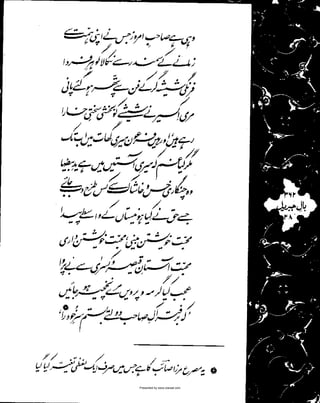 وہی ہے صاحبِ امروز جس نے اپنی ہمت سے
زمانے کے سمندر سے نکالا گوہرِ فردا
فرنگی شیشہ گر کے فن سے پتھر ہوگئے پانی
مری اکسیر نے شیشے کو بخشی سختیِ خارا
رہے ہیں اور ہیں فرعون میری گھات میں اب تک
مگر کیا غم کہ میری آستیں میں ہے یدِ بیضا
وہ چنگاری خس و خاشاک سے کس طرح دب جائے
جسے حق نے کیا ہو نیستاں کے واسطے پیدا
محبت خویشتن بینی محبت خویشتن داری
محبت آستانِ قیصر و کسریٰ سے بے پروا
عجب کیا گر مہ و پرویں مرے نخچیر ہو جائیں
’کہ بر فتراکِ صاحب دولتے بستم سرِ خود را‘
یہ مصرع مرزا صائب کا ہے جس میں صرف ایک لفظی تغیر کیا گیا
۳۶۲
بالِ جبریل
۳۸